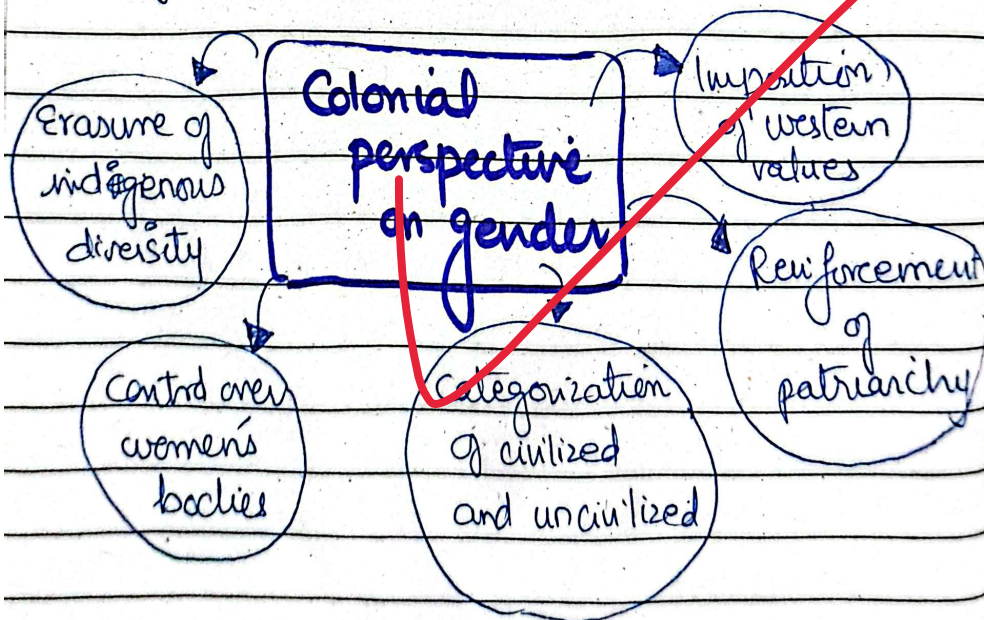 Colonial
perspective
on gender
Erasure of
indigenous
diversity
Imposition
of western
values
Reinforcement
of
patriarchy
Control over
women's
bodies
Categorization
of civilized
and uncivilized